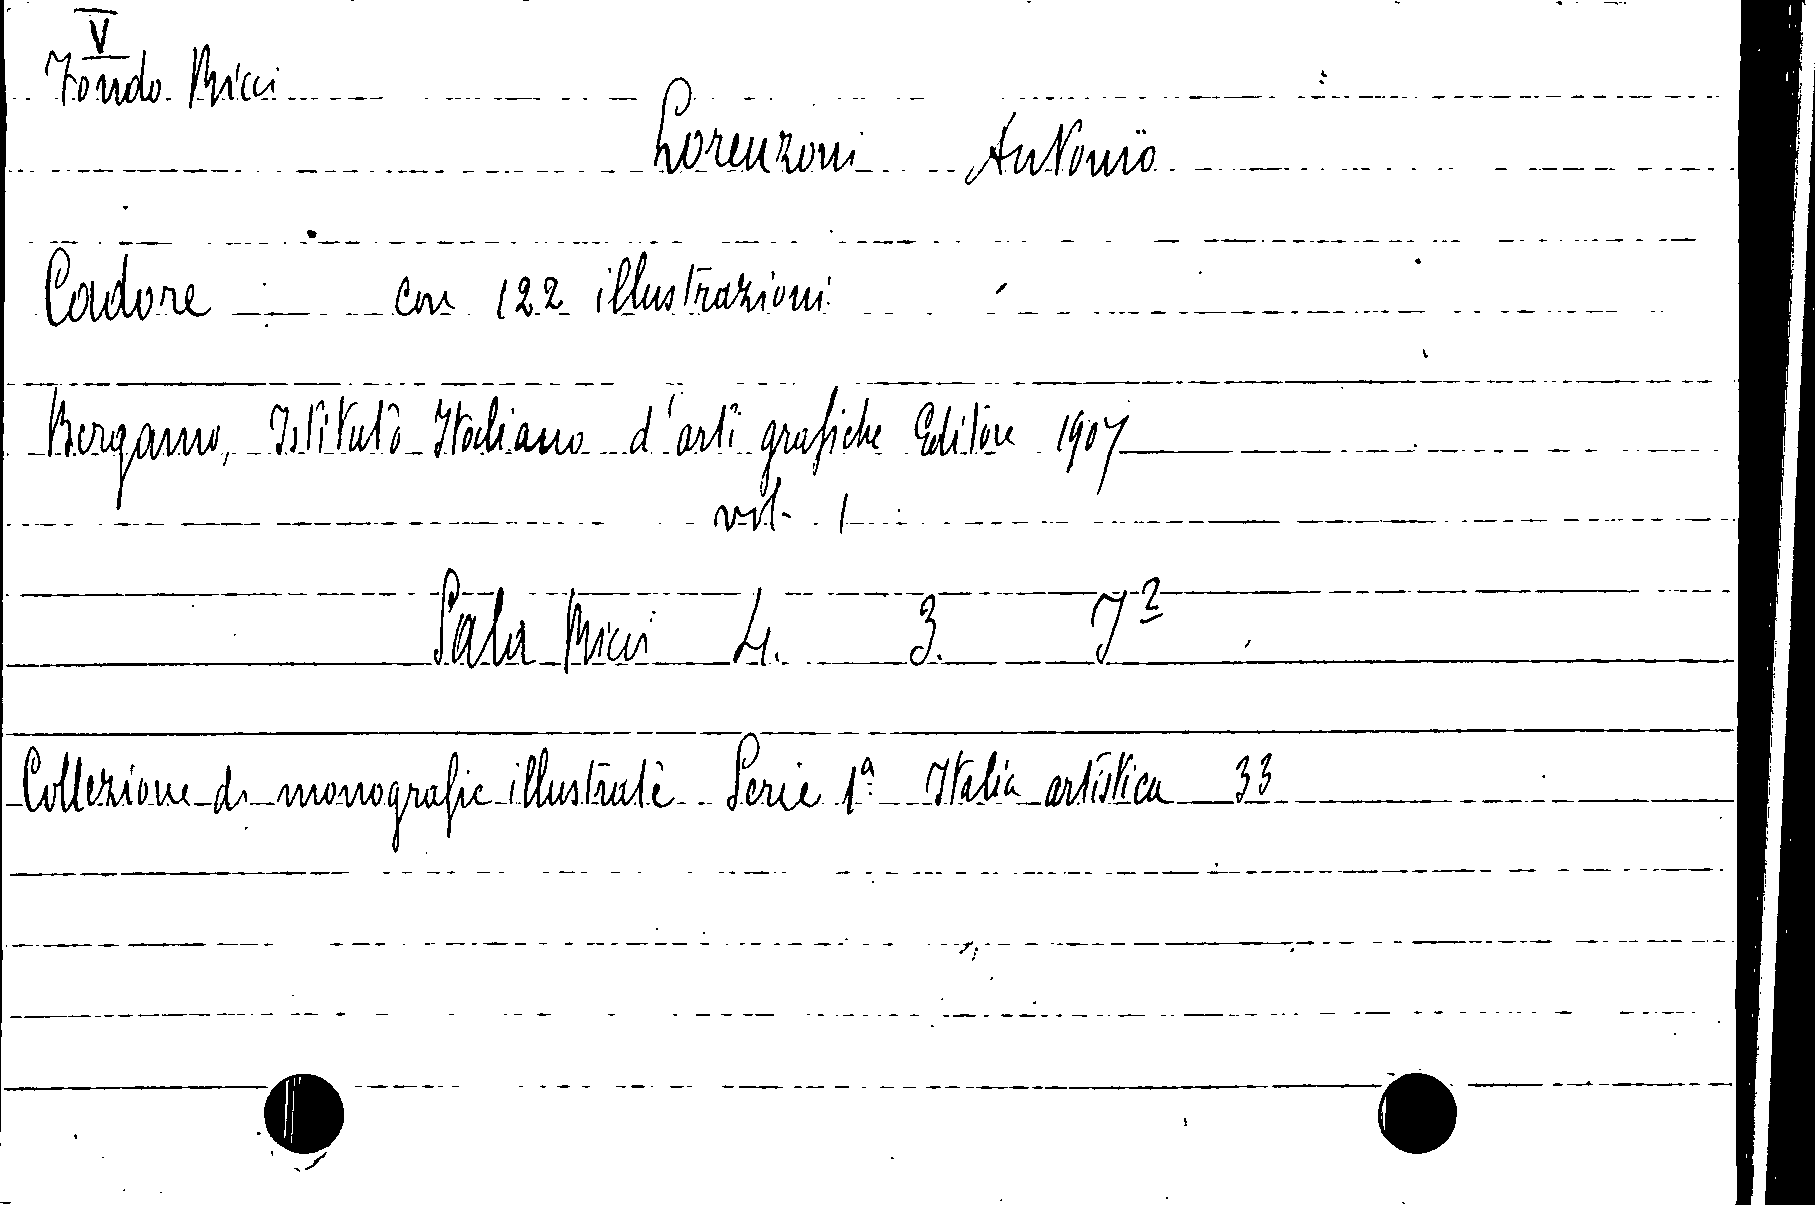 V
Fondo Ricci
Lorenzoni Antonio
Cadore con 122 illustrazioni
Bergamo, Istituto Italiano d'arti grafiche Editore 1907
vol. 1
Sala Ricci 4. 3. 7²
Collezione di monografie illustrate Serie 1ª Italia artistica 33